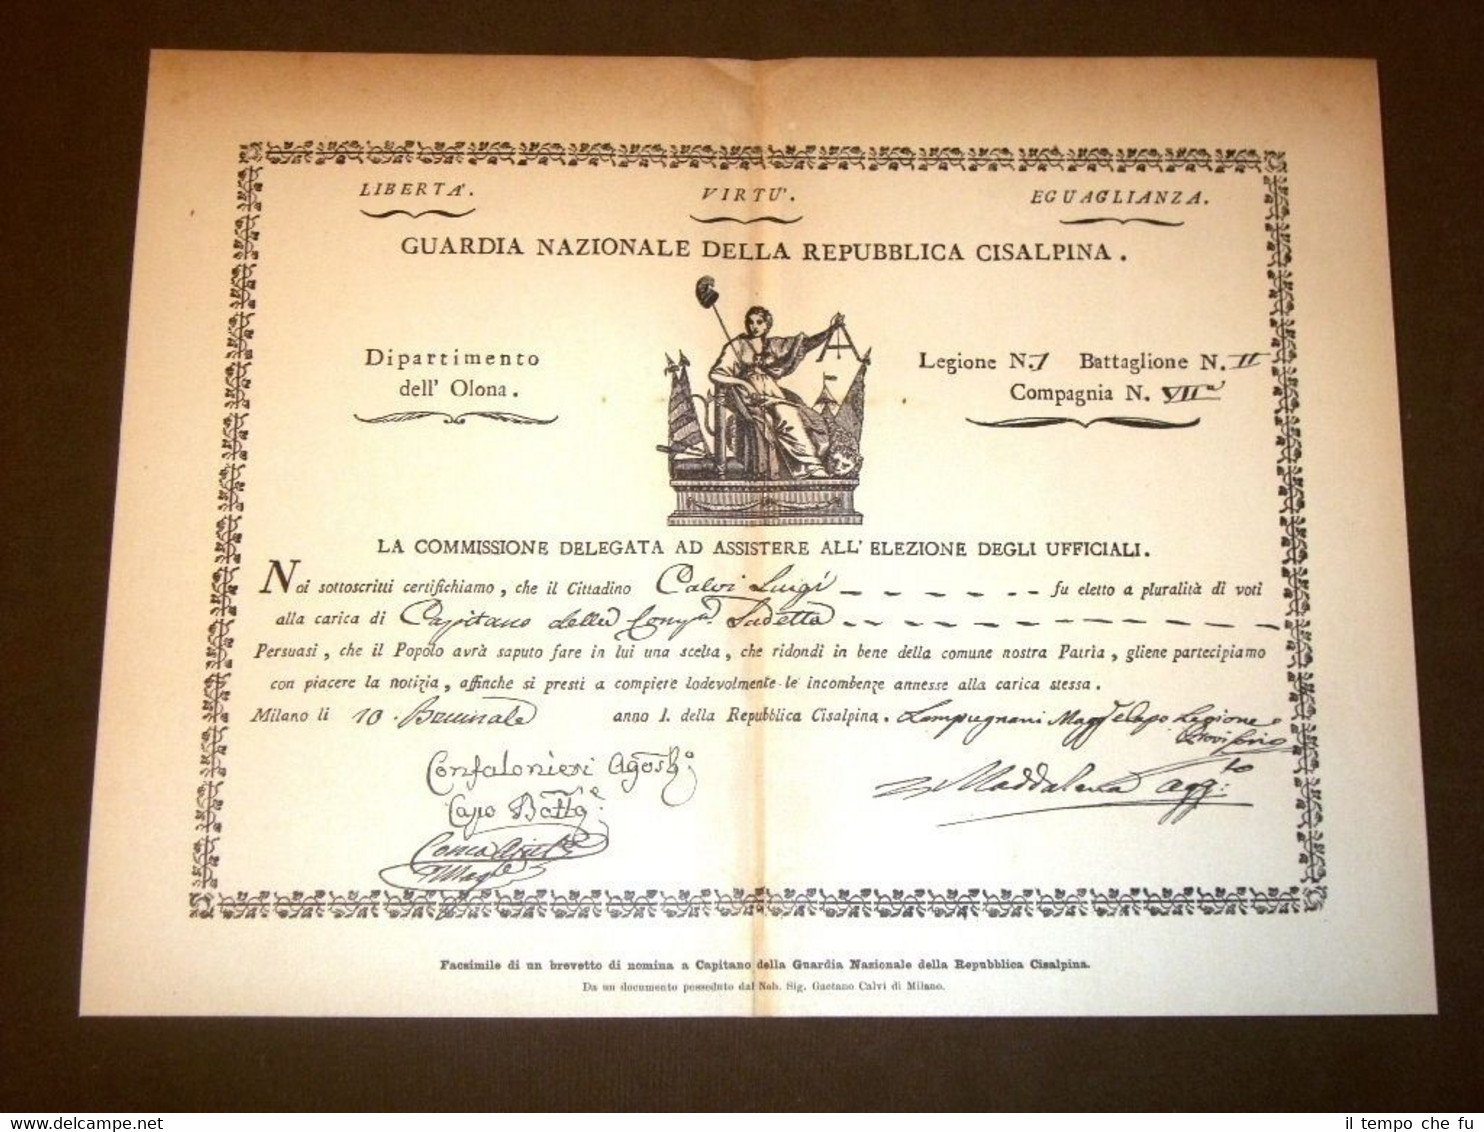 LIBERTA'. VIRTU'. EGUAGLIANZA.
GUARDIA NAZIONALE DELLA REPUBBLICA CISALPINA.
Dipartimento
dell' Olona.
Legione N. I Battaglione N. II
Compagnia N. VII
LA COMMISSIONE DELEGATA AD ASSISTERE ALL' ELEZIONE DEGLI UFFICIALI.
Noi sottoscritti certifichiamo, che il Cittadino Calvi Luigi fu eletto a pluralità di voti
alla carica di Capitano della Compa. Sudetta
Persuasi, che il Popolo avrà saputo fare in lui una scelta, che ridondi in bene della comune nostra Patria, gliene partecipiamo
con piacere la notizia, affinche si presti a compiere lodevolmente le incombenze annesse alla carica stessa.
Milano li 10. Brumale anno I. della Repubblica Cisalpina. Lampugnani Capo Legione
Provisorio
Confalonieri Agost.o
Capo Batt.e
Maddalena Agg.to
Facsimile di un brevetto di nomina a Capitano della Guardia Nazionale della Repubblica Cisalpina.
Da un documento posseduto dal Nob. Sig. Gaetano Calvi di Milano.
il tempo che fu